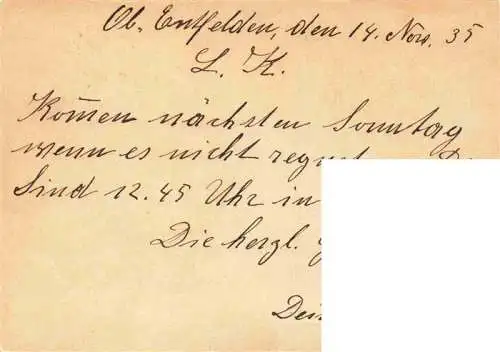 Ob. Entfelden, den 14. Nov. 35
L. K.
Kom̅en nächsten Sonntag
wenn es nicht regnet
Sind 12.45 Uhr in
Die herzl.